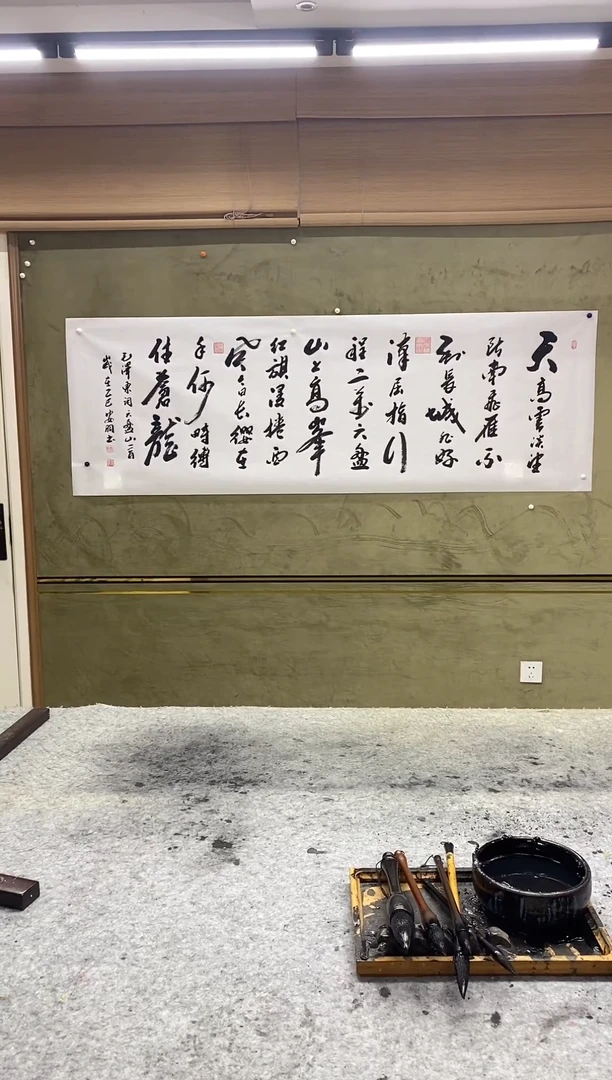 天高雲淡望
断南飛雁不
到長城非好
漢屈指行
程二萬六盤
山上高峯
红旗漫捲西
風今日長纓在
手何時縛
住蒼龍
毛澤東词六盘山一首
歲在乙巳书